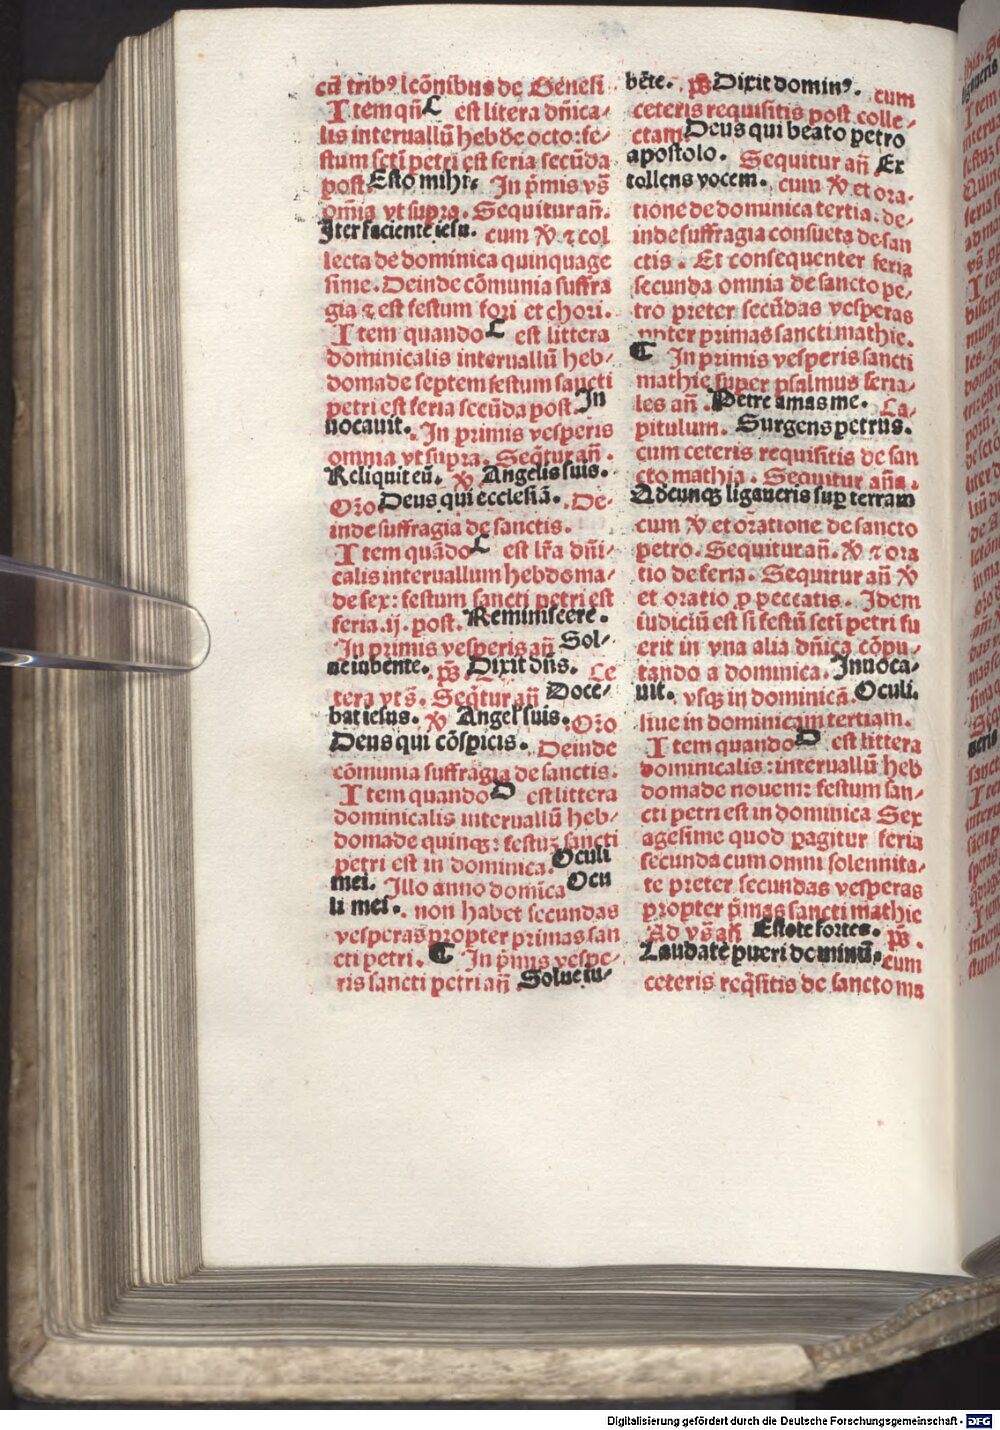 cū tribꝰ lcōnibus de Geneſi
Item qñ C eſt litera dñica⸗
lis interuallū hebde octo: fe⸗
ſtum ſcti petri eſt feria ſecūda
poſt. Eſto mihi. In p̄mis vs̄
om̄ia vt ſupra. Sequitur an̄.
Iter faciente ieſu. cum ℣ ⁊ col
lecta de dominica quinquage
ſime. Deinde cōmunia ſuffra
gia ⁊ eſt feſtum fori et chori.
Item quando C eſt littera
dominicalis interuallū heb⸗
domade ſeptem feſtum ſancti
petri eſt feria ſecūda poſt. In
uocauit. In primis veſperis
omnia vt ſupra. Seq̄tur an̄.
Reliquit eū. ℣ Angelis ſuis.
Oro Deus qui eccleſiā. De⸗
inde ſuffragia de ſanctis.
Item quādo C eſt lr̄a dñi⸗
calis interuallum hebdoma⸗
de ſex: feſtum ſancti petri eſt
feria .ij. poſt. Reminiſcere.
In primis veſperis an̄ Sol⸗
ue iubente. p̄s Dixit dn̄s. Ce
tera vt s̄. Seq̄tur an̄ Doce⸗
bat ieſus. ℣ Angeľ ſuis. Oro
Deus qui cōſpicis. Deinde
cōmunia ſuffragia de ſanctis.
Item quando D eſt littera
dominicalis interuallū heb⸗
domade quinqꝫ: feſtuꝫ ſancti
petri eſt in dominica. Oculi
mei. Illo anno domīca Ocu
li mei. non habet ſecundas
veſperas propter primas ſan
cti petri. ¶ In p̄mis veſpe⸗
ris ſancti petri an̄ Solue iu⸗
bēte. p̄s Dixit dominꝰ. cum
ceteris requiſitis poſt colle⸗
ctam Deus qui beato petro
apoſtolo. Sequitur an̄ Ex
tollens vocem. cum ℣ et ora⸗
tione de dominica tertia. de⸗
inde ſuffragia conſueta de ſan
ctis. Et conſequenter feria
ſecunda omnia de ſancto pe⸗
tro preter ſecūdas veſperas
ꝓpter primas ſancti mathie.
¶ In primis veſperis ſancti
mathie ſuper pſalmus feria⸗
les an̄. Petre amas me. Ca⸗
pitulum. Surgens petrus.
cum ceteris requiſitis de ſan
cto mathia. Sequitur an̄a.
Quodcunqꝫ ligaueris ſup terram
cum ℣ et oratione de ſancto
petro. Sequitur an̄. ℣ ⁊ ora
tio de feria. Sequitur an̄ ℣
et oratio ꝓ peccatis. Idem
iudiciū eſt ſi feſtū ſcti petri fu
erit in vna alia dñica cōpu⸗
tando a dominica. Inuoca⸗
uit. vſqꝫ in dominicā. Oculi.
ſiue in dominicam tertiam.
Item quando D eſt littera
dominicalis: interuallū heb
domade nouem: feſtum ſan⸗
cti petri eſt in dominica Sex
ageſime quod pagitur feria
ſecunda cum omni ſolennita⸗
te preter ſecundas veſperas
propter p̄mas ſancti mathie
Ad vs̄ an̄ Eſtote fortes. p̄s.
Laudate pueri dominū. cum
ceteris req̄ſitis de ſancto ma
Digitalisierung gefördert durch die Deutsche Forschungsgemeinschaft - DFG